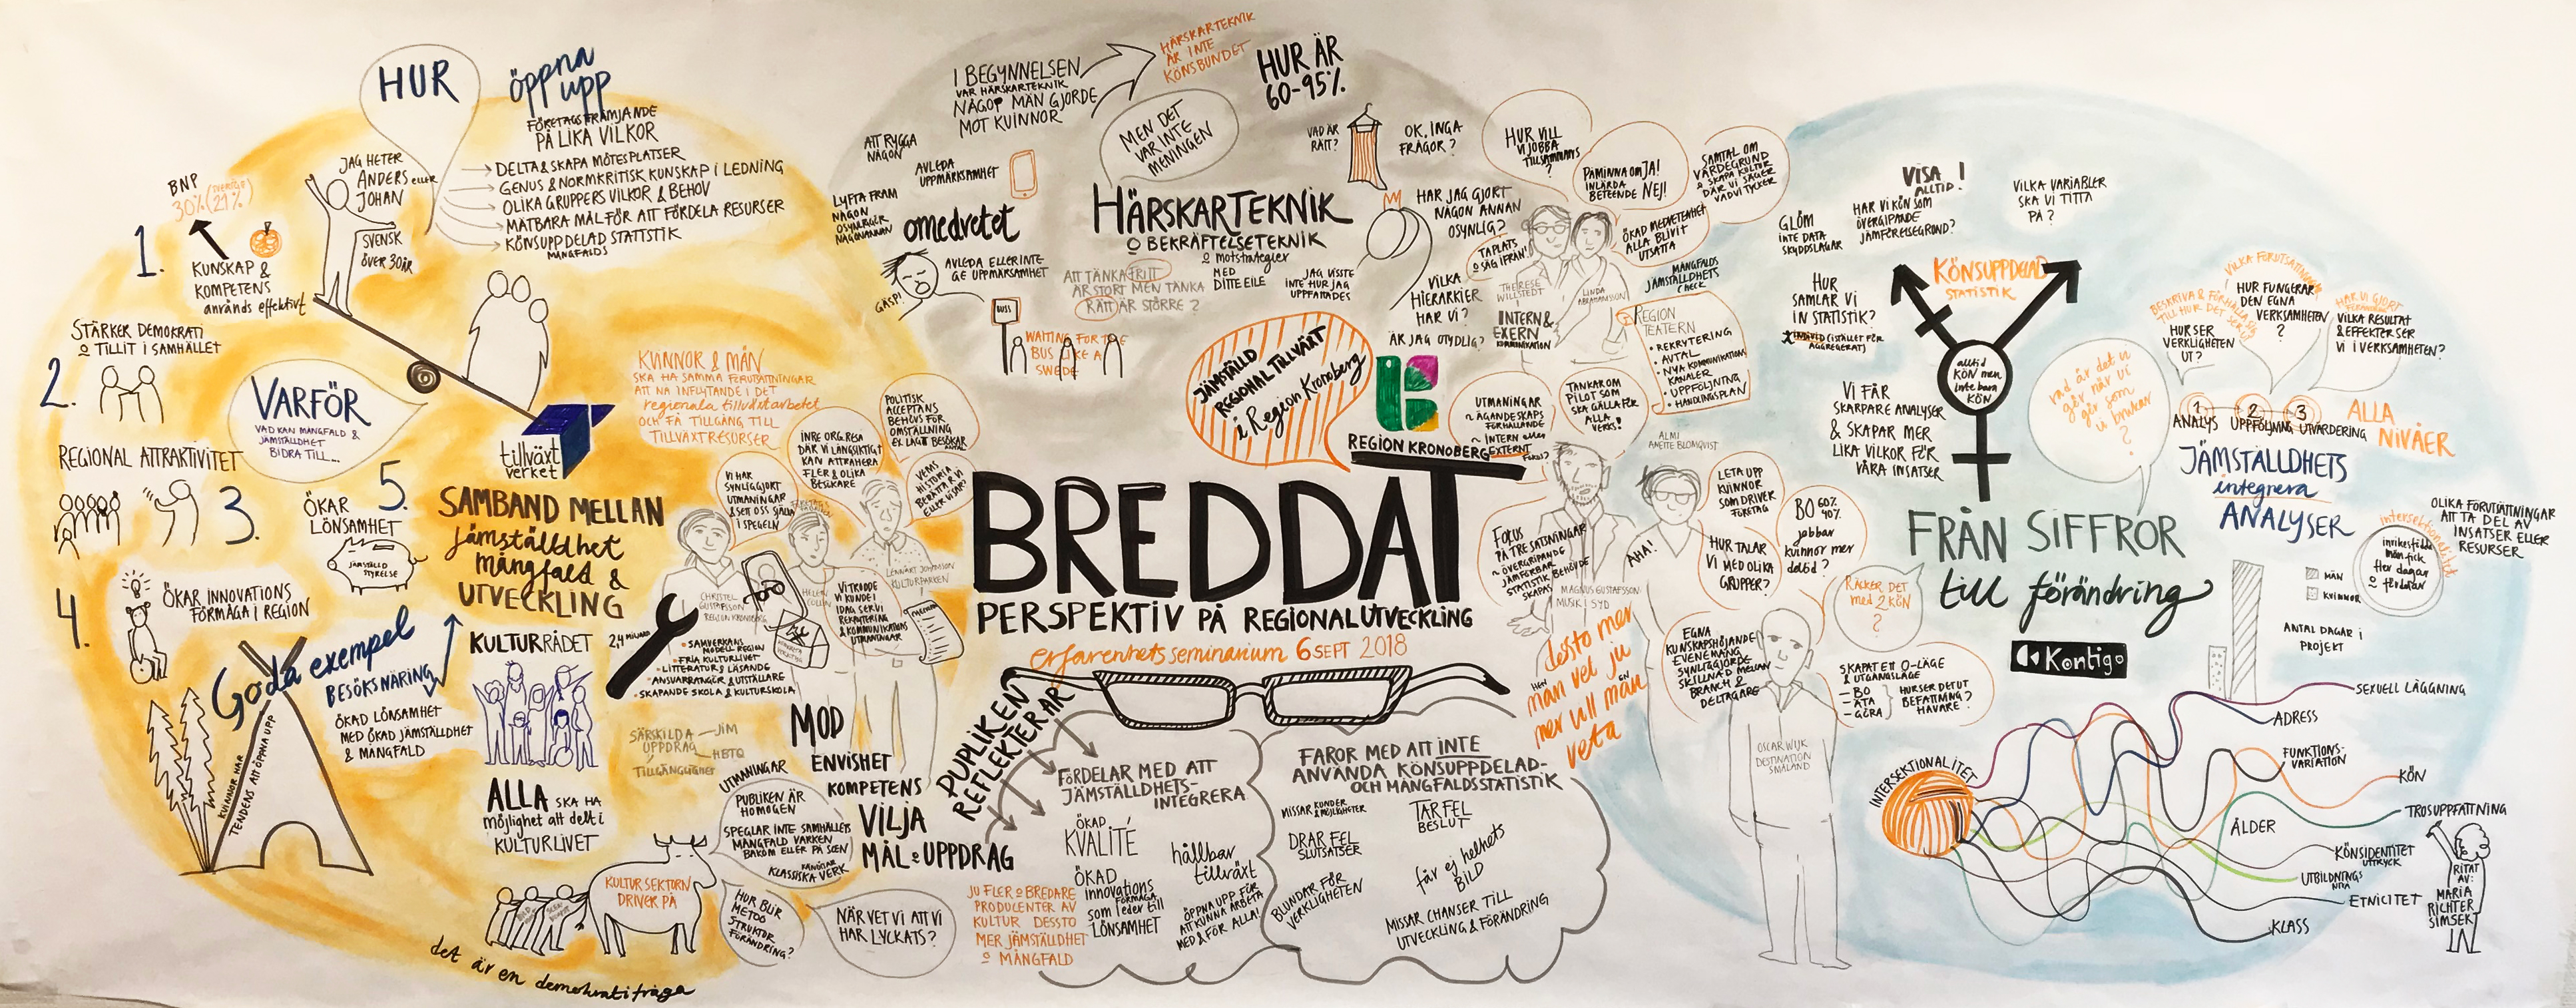 HUR
öppna
upp
FÖRETAGSFRÄMJANDE
PÅ LIKA VILKOR
DELTA & SKAPA MÖTESPLATSER
GENUS & NORMKRITISK KUNSKAP I LEDNING
OLIKA GRUPPERS VILKOR & BEHOV
MÄTBARA MÅL FÖR ATT FÖRDELA RESURSER
KÖNSUPPDELAD STATISTIK
MÅNGFALDS
JAG HETER
ANDERS eller
JOHAN
SVENSK
ÖVER 30ÅR
BNP
30% (SVERIGE 21%)
1.
KUNSKAP &
KOMPETENS
används effektivt
STÄRKER DEMOKRATI
O TILLIT I SAMHÄLLET
2.
VARFÖR
VAD KAN MÅNGFALD &
JÄMSTÄLLDHET
BIDRA TILL...
REGIONAL ATTRAKTIVITET
3.
5.
ÖKAR
LÖNSAMHET
JÄMSTÄLLD
STYRELSE
4.
ÖKAR INNOVATIONS
FÖRMÅGA I REGION
tillväxt
verket
SAMBAND MELLAN
jämställdhet
mångfald &
UTVECKLING
Goda exempel
BESÖKSNÄRING
ÖKAD LÖNSAMHET
MED ÖKAD JÄMSTÄLLDHET
& MÅNGFALD
KVINNOR HAR
TENDENS ATT ÖPPNA UPP
KULTURRÅDET
2,4 MILJARD
• SAMVERKANS
MODELL REGION
• FRIA KULTURLIVET
• LITTERATUR & LÄSANDE
• ANSVARRANGÖR & UTSTÄLLARE
• SKAPANDE SKOLA & KULTURSKOLA
ALLA SKA HA
möjlighet att delta i
KULTURLIVET
SÄRSKILDA
UPPDRAG
JIM
HBTQ
TILLGÄNGLIGHET
KULTURSEKTORN
DRIVER PÅ
det är en demokratifråga
UTMANINGAR
PUBLIKEN ÄR
HOMOGEN
SPEGLAR INTE SAMHÄLLETS
MÅNGFALD VARKEN
BAKOM ELLER PÅ SCEN
KLASSISKA VERK
HUR BLIR
METOO
STRUKTUR
FÖRÄNDRING?
NÄR VET VI ATT VI
HAR LYCKATS?
MOD
ENVISHET
KOMPETENS
VILJA
MÅL & UPPDRAG
KVINNOR & MÄN
SKA HA SAMMA FÖRUTSÄTTNINGAR
ATT NÅ INFLYTANDE I DET
regionala tillväxtarbetet
OCH FÅ TILLGÅNG TILL
TILLVÄXTRESURSER
VI HAR
SYNLIGGJORT
UTMANINGAR
& SETT OSS SJÄLVA
I SPEGELN
INRE ORG.RESA
DÄR VI LÅNGSIKTIGT
KAN ATTRAHERA
FLER & OLIKA
BESÖKARE
POLITISK
ACCEPTANS
BEHÖVS FÖR
OMSTÄLLNING
EX LÄGT BESÖKAR
ANTAL
VEMS
HISTORIA
BERÄTTAR VI
ELLER VISAR?
CHRISTEL
GUSTAFSSON
REGION KRONOBERG
LENNART JOHANSSON
KULTURPARKEN
VI TRODDE
VI KUNDE I
DAG SER VI
REKRYTERING
& KOMMUNIKATIONS
UTMANINGAR
I BEGYNNELSEN
VAR HÄRSKARTEKNIK
NÅGOT MÄN GJORDE
MOT KVINNOR
HÄRSKARTEKNIK
ÄR INTE
KÖNSBUNDET
HUR ÄR
60-95%
MEN DET
VAR INTE
MENINGEN
ATT RYGGA
NÅGON
AVLEDA
UPPMÄRKSAMHET
LYFTA FRAM
NÅGON
OSYNLIGGÖR
NÅGON ANNAN
omedvetet
AVLEDA ELLER INTE
GE UPPMÄRKSAMHET
GÄSP!
BUSS
WAITING FOR THE
BUS LIKE A
SWEDE
HÄRSKARTEKNIK
O BEKRÄFTELSETEKNIK
O motstrategier
ATT TÄNKA FRITT
ÄR STORT MEN TÄNKA
RÄTT ÄR STÖRRE?
MED
DITTE EILE
JAG VISSTE
INTE HUR JAG
UPPFATTADES
VAD ÄR
RÄTT?
OK, INGA
FRÅGOR?
HAR JAG GJORT
NÅGON ANNAN
OSYNLIG?
VILKA
HIERARKIER
HAR VI?
ÄR JAG OTYDLIG?
JÄMSTÄLLD
REGIONAL TILLVÄXT
i Region Kronoberg
REGION KRONOBERG
BREDDAT
PERSPEKTIV PÅ REGIONAL UTVECKLING
erfarenhetsseminarium 6 SEPT 2018
PUPLIKEN
REFLEKTERAR
FÖRDELAR MED ATT
JÄMSTÄLLDHETS-
INTEGRERA
ÖKAD
KVALITÉ
hållbar
tillväxt
ÖKAD
innovations
FÖRMÅGA
som leder till
LÖNSAMHET
ÖPPNA UPP FÖR
ATT KUNNA ARBETA
MED & FÖR ALLA!
JU FLER O BREDARE
PRODUCENTER AV
KULTUR DESSTO
MER JÄMSTÄLLDHET
O MÅNGFALD
FAROR MED ATT INTE
ANVÄNDA KÖNSUPPDELAD-
OCH MÅNGFALDSSTATISTIK
MISSAR KUNDER
& MÖJLIGHETER
TAR FEL
BESLUT
DRAR FEL
SLUTSATSER
får ej helhets
BILD
BLUNDAR FÖR
VERKLIGHETEN
MISSAR CHANSER TILL
UTVECKLING & FÖRÄNDRING
HUR VILL
VI JOBBA
TILLSAMMANS
?
PÅMINNA OM JA!
INLÄRDA
BETEENDE NEJ!
SAMTAL OM
VÄRDEGRUND
& SKAPA KULTUR
DÄR VI SÄGER
VAD VI TYCKER
TA PLATS
O SÄG IFRÅN!
ÖKAD MEDVETENHET
ALLA BLIVIT
UTSATTA
THERESE
WILLSTEDT
LINDA
ABRAHAMSSON
INTERN &
EXTERN
KOMMUNIKATION
MÅNGFALDS
JÄMSTÄLLDHETS
CHECK
REGION
TEATERN
• REKRYTERING
• AVTAL
• NYA KOMMUNIKATIONS
KANALER
• UPPFÖLJNING
• HANDLINGSPLAN
UTMANINGAR
~ ÄGANDESKAPS
FÖRHÅLLANDE
~ INTERN eller
EXTERNT
FOKUS?
TANKAR OM
PILOT SOM
SKA GÄLLA FÖR
ALLA
VERKS!
ALMI
ANETTE BLOMQVIST
FOKUS
PÅ TRE SATSNINGAR
~ ÖVERGRIPANDE
JÄMFÖRBAR
STATISTIK BEHÖVDE
SKAPAS
MAGNUS GUSTAFSSON
MUSIK I SYD
AHA!
LETA UPP
KVINNOR
SOM DRIVER
FÖRETAG
HUR TALAR
VI MED OLIKA
GRUPPER?
BO 60%
40%
jobbar
kvinnor mer
deltid?
dessto mer
HEN
man vet ju
EN
mer vill man
veta
EGNA
KUNSKAPSHÖJANDE
EVENEMANG
SYNLIGGJORDE
SKILLNAD MELLAN
BRANCH &
DELTAGARE
RÄCKER DET
med 2 KÖN
?
SKAPAT ETT 0-LÄGE
& UTGÅNGSLÄGE
- BO
- ÄTA
- GÖRA
HUR SER DET UT
BEFATTNING?
HAVARE?
OSCAR WIJK
DESTINATION
SMÅLAND
VISA!
ALLTID!
GLÖM
INTE DATA
SKYDDSLAGAR
HAR VI KÖN SOM
ÖVERGRIPANDE
JÄMFÖRELSEGRUND?
VILKA VARIABLER
SKA VI TITTA
PÅ?
HUR
SAMLAR VI
IN STATISTIK?
INDIVID (ISTÄLLET FÖR
AGGREGERAT)
KÖNSUPPDELAD
STATISTIK
alltid
KÖN men
inte bara
KÖN
VI FÅR
SKARPARE ANALYSER
& SKAPAR MER
LIKA VILKOR FÖR
VÅRA INSATSER
vad är det vi
gör när vi
gör som
vi brukar
?
BESKRIVA & FÖRHÅLLA SIG
TILL HUR DET SER UT
HUR SER
VERKLIGHETEN
UT?
VILKA FÖRUTSÄTTNINGAR
HUR FUNGERAR
DEN EGNA
VERKSAMHETEN
?
HAR VI GJORT
VILKA RESULTAT
& EFFEKTER SER
VI I VERKSAMHETEN?
1
2
3
ANALYS UPPFÖLJNING UTVÄRDERING
ALLA
NIVÅER
JÄMSTÄLLDHETS
integrera
ANALYSER
FRÅN SIFFROR
till förändring
Kontigo
OLIKA FÖRUTSÄTTNINGAR
ATT TA DEL AV
INSATSER ELLER
RESURSER
intersektionalitet
inrikesfödda
män fick
fler dagar
o fördelar
MÄN
KVINNOR
ANTAL DAGAR I
PROJEKT
INTERSEKTIONALITET
SEXUELL LÄGGNING
ADRESS
FUNKTIONS-
VARIATION
KÖN
TROSUPPFATTNING
ÅLDER
KÖNSIDENTITET
UTTRYCK
UTBILDNINGS
NIVÅ
ETNICITET
KLASS
RITAT
AV:
MARIA
RICHTER
SIMSEK